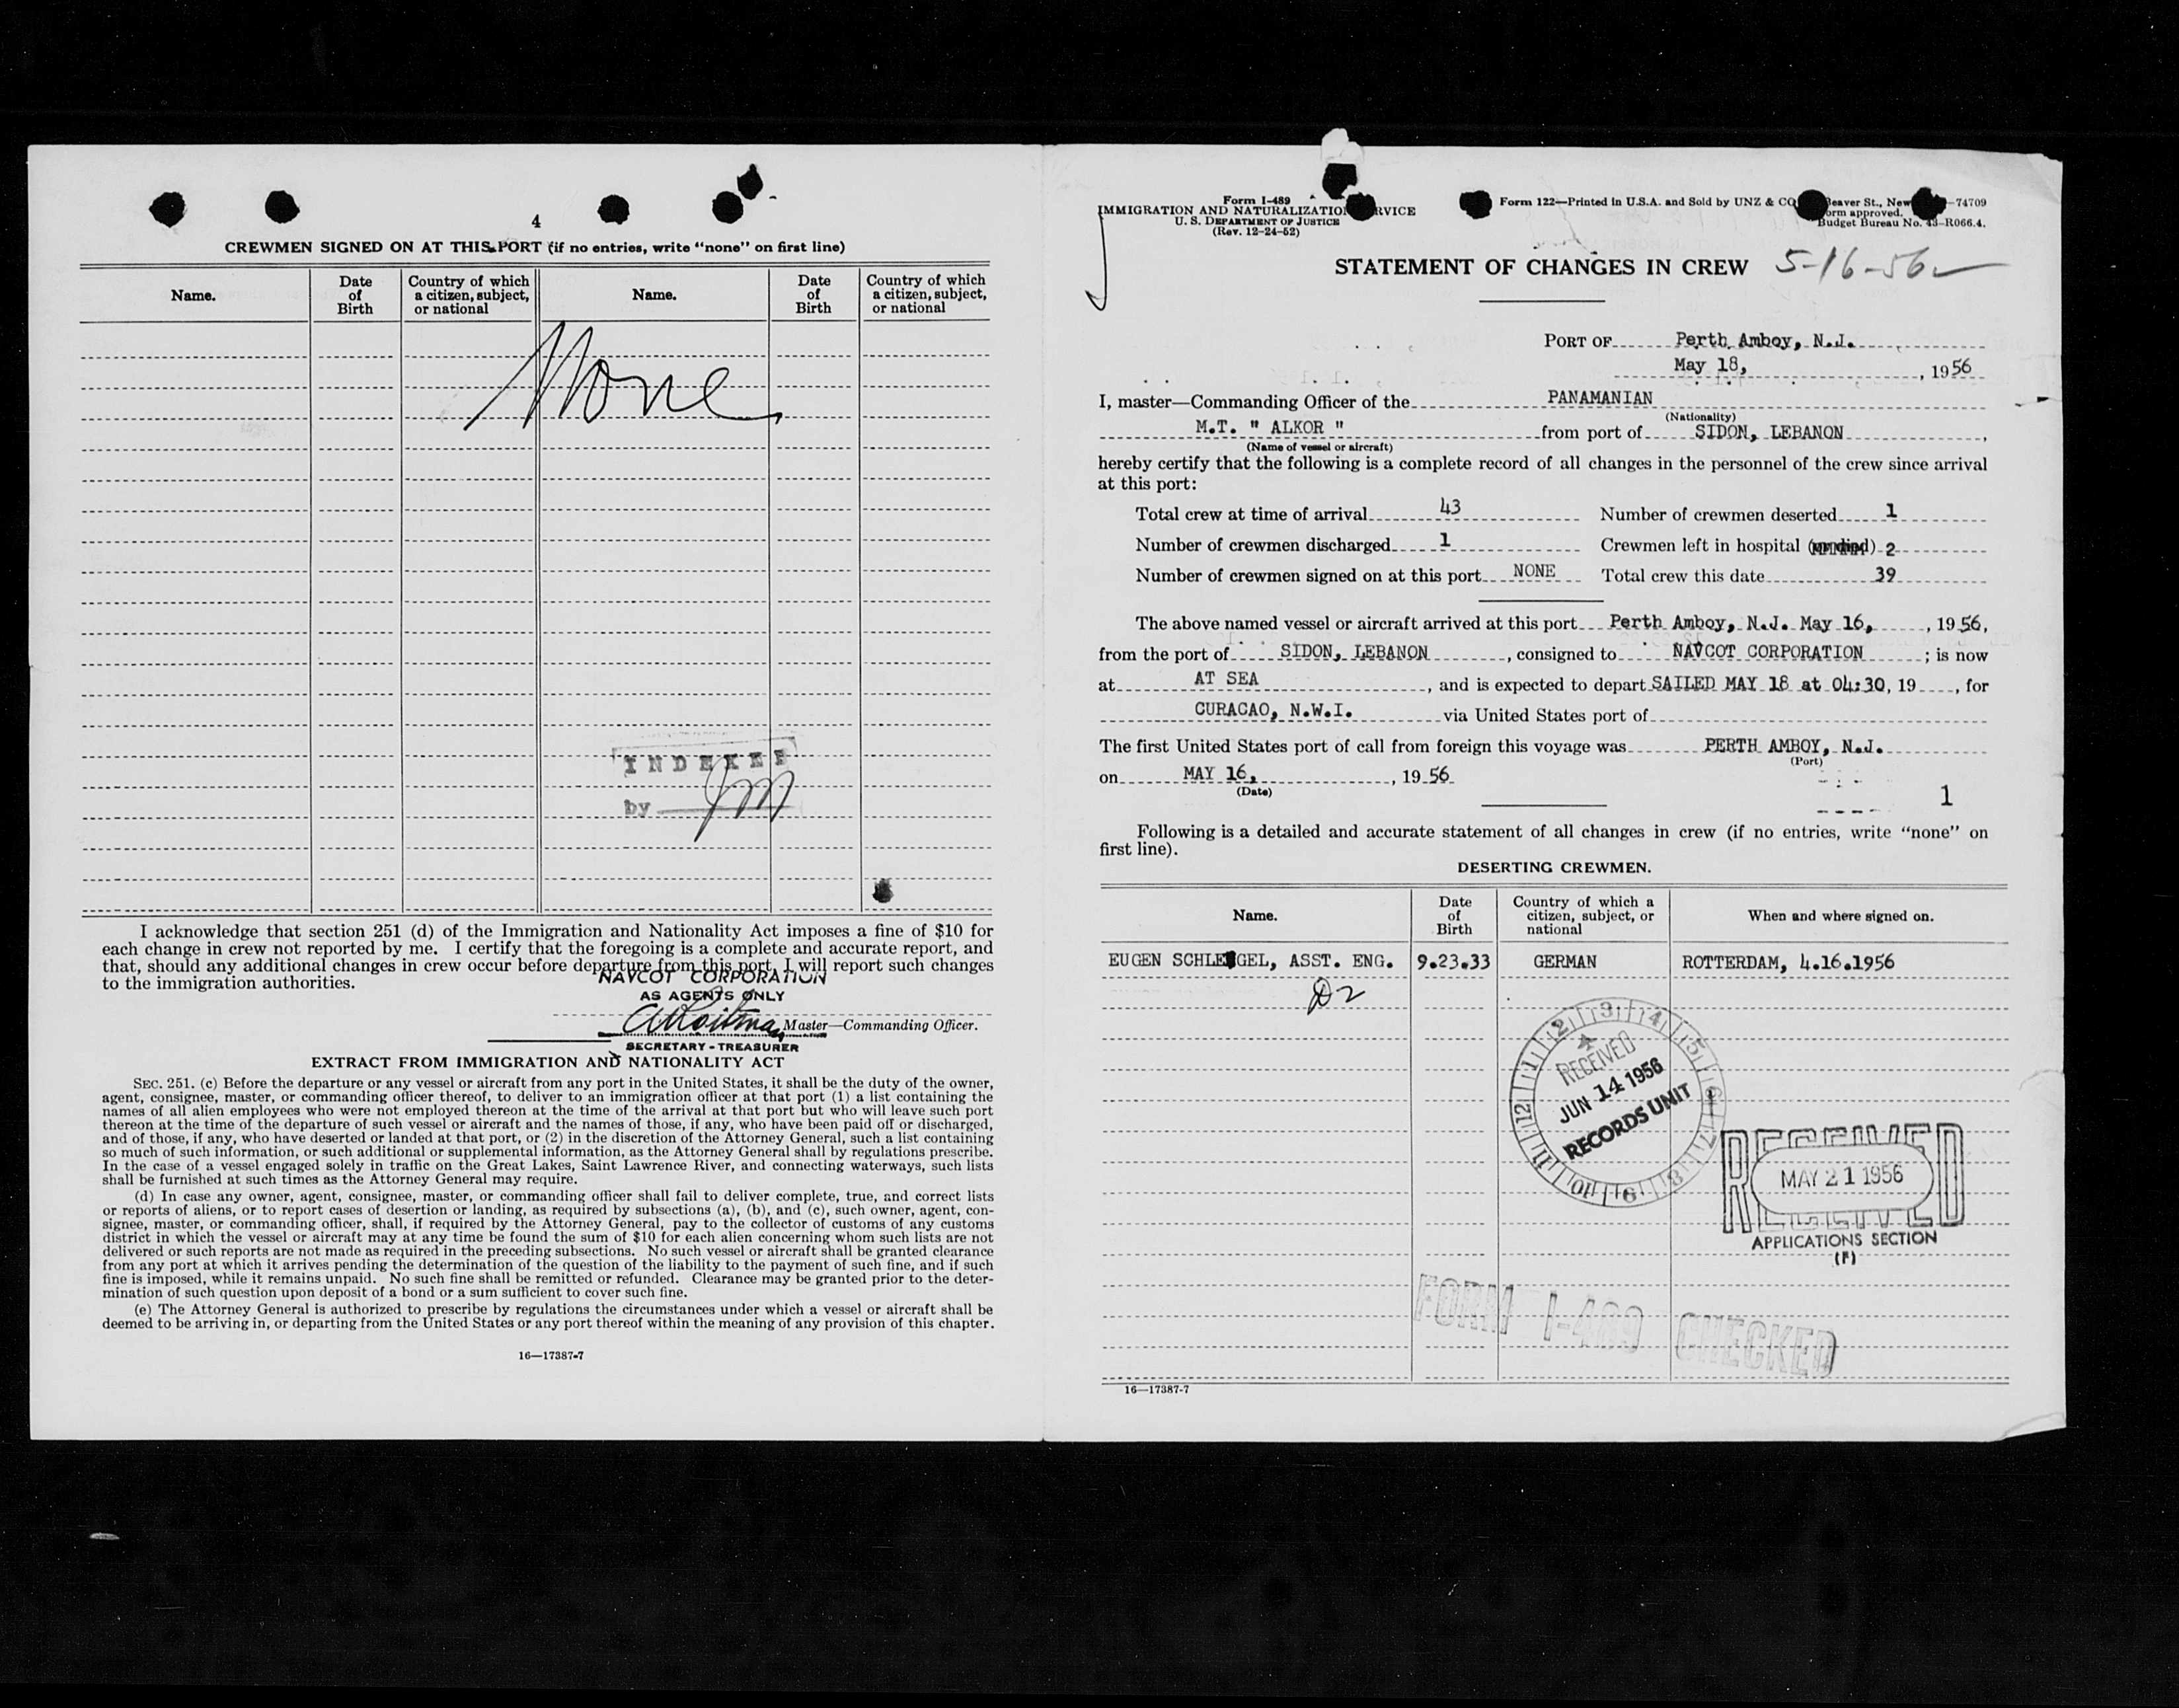 4
CREWMEN SIGNED ON AT THIS PORT (if no entries, write "none" on first line)
Name. Date of Birth Country of which a citizen, subject, or national Name. Date of Birth Country of which a citizen, subject, or national
None
INDEXED
by JM
I acknowledge that section 251 (d) of the Immigration and Nationality Act imposes a fine of $10 for
each change in crew not reported by me. I certify that the foregoing is a complete and accurate report, and
that, should any additional changes in crew occur before departure from this port, I will report such changes
to the immigration authorities.
NAVCOT CORPORATION
AS AGENTS ONLY
Master—Commanding Officer.
SECRETARY - TREASURER
EXTRACT FROM IMMIGRATION AND NATIONALITY ACT
SEC. 251. (c) Before the departure or any vessel or aircraft from any port in the United States, it shall be the duty of the owner,
agent, consignee, master, or commanding officer thereof, to deliver to an immigration officer at that port (1) a list containing the
names of all alien employees who were not employed thereon at the time of the arrival at that port but who will leave such port
thereon at the time of the departure of such vessel or aircraft and the names of those, if any, who have been paid off or discharged,
and of those, if any, who have deserted or landed at that port, or (2) in the discretion of the Attorney General, such a list containing
so much of such information, or such additional or supplemental information, as the Attorney General shall by regulations prescribe.
In the case of a vessel engaged solely in traffic on the Great Lakes, Saint Lawrence River, and connecting waterways, such lists
shall be furnished at such times as the Attorney General may require.
(d) In case any owner, agent, consignee, master, or commanding officer shall fail to deliver complete, true, and correct lists
or reports of aliens, or to report cases of desertion or landing, as required by subsections (a), (b), and (c), such owner, agent, con-
signee, master, or commanding officer, shall, if required by the Attorney General, pay to the collector of customs of any customs
district in which the vessel or aircraft may at any time be found the sum of $10 for each alien concerning whom such lists are not
delivered or such reports are not made as required in the preceding subsections. No such vessel or aircraft shall be granted clearance
from any port at which it arrives pending the determination of the question of the liability to the payment of such fine, and if such
fine is imposed, while it remains unpaid. No such fine shall be remitted or refunded. Clearance may be granted prior to the deter-
mination of such question upon deposit of a bond or a sum sufficient to cover such fine.
(e) The Attorney General is authorized to prescribe by regulations the circumstances under which a vessel or aircraft shall be
deemed to be arriving in, or departing from the United States or any port thereof within the meaning of any provision of this chapter.
16—17387-7
Form I-489
IMMIGRATION AND NATURALIZATION SERVICE
U. S. DEPARTMENT OF JUSTICE
(Rev. 12-24-52)
Form 122—Printed in U.S.A. and Sold by UNZ & CO Beaver St., New —74709
Form approved.
Budget Bureau No. 43-R066.4.
STATEMENT OF CHANGES IN CREW 5-16-56
PORT OF Perth Amboy, N.J.
May 18, , 1956
I, master—Commanding Officer of the PANAMANIAN
(Nationality)
M.T. " ALKOR " from port of SIDON, LEBANON ,
(Name of vessel or aircraft)
hereby certify that the following is a complete record of all changes in the personnel of the crew since arrival
at this port:
Total crew at time of arrival 43 Number of crewmen deserted 1
Number of crewmen discharged 1 Crewmen left in hospital (or died) 2
Number of crewmen signed on at this port NONE Total crew this date 39
The above named vessel or aircraft arrived at this port Perth Amboy, N.J. May 16, , 1956,
from the port of SIDON, LEBANON , consigned to NAVCOT CORPORATION ; is now
at AT SEA , and is expected to depart SAILED MAY 18 at 04:30, 19 , for
CURACAO, N.W.I. via United States port of
The first United States port of call from foreign this voyage was PERTH AMBOY, N.J.
(Port)
on MAY 16, , 1956
(Date)
1
Following is a detailed and accurate statement of all changes in crew (if no entries, write "none" on
first line).
DESERTING CREWMEN.
Name. Date of Birth Country of which a citizen, subject, or national When and where signed on.
EUGEN SCHLEGEL, ASST. ENG. 9.23.33 GERMAN ROTTERDAM, 4.16.1956
D2
1 2 3 4 5 6 7 8 9 10 11 12
RECEIVED
JUN 14 1956
RECORDS UNIT
RECEIVED
MAY 21 1956
RECEIVED
APPLICATIONS SECTION
(F)
FORM I-489 CHECKED
16—17387-7